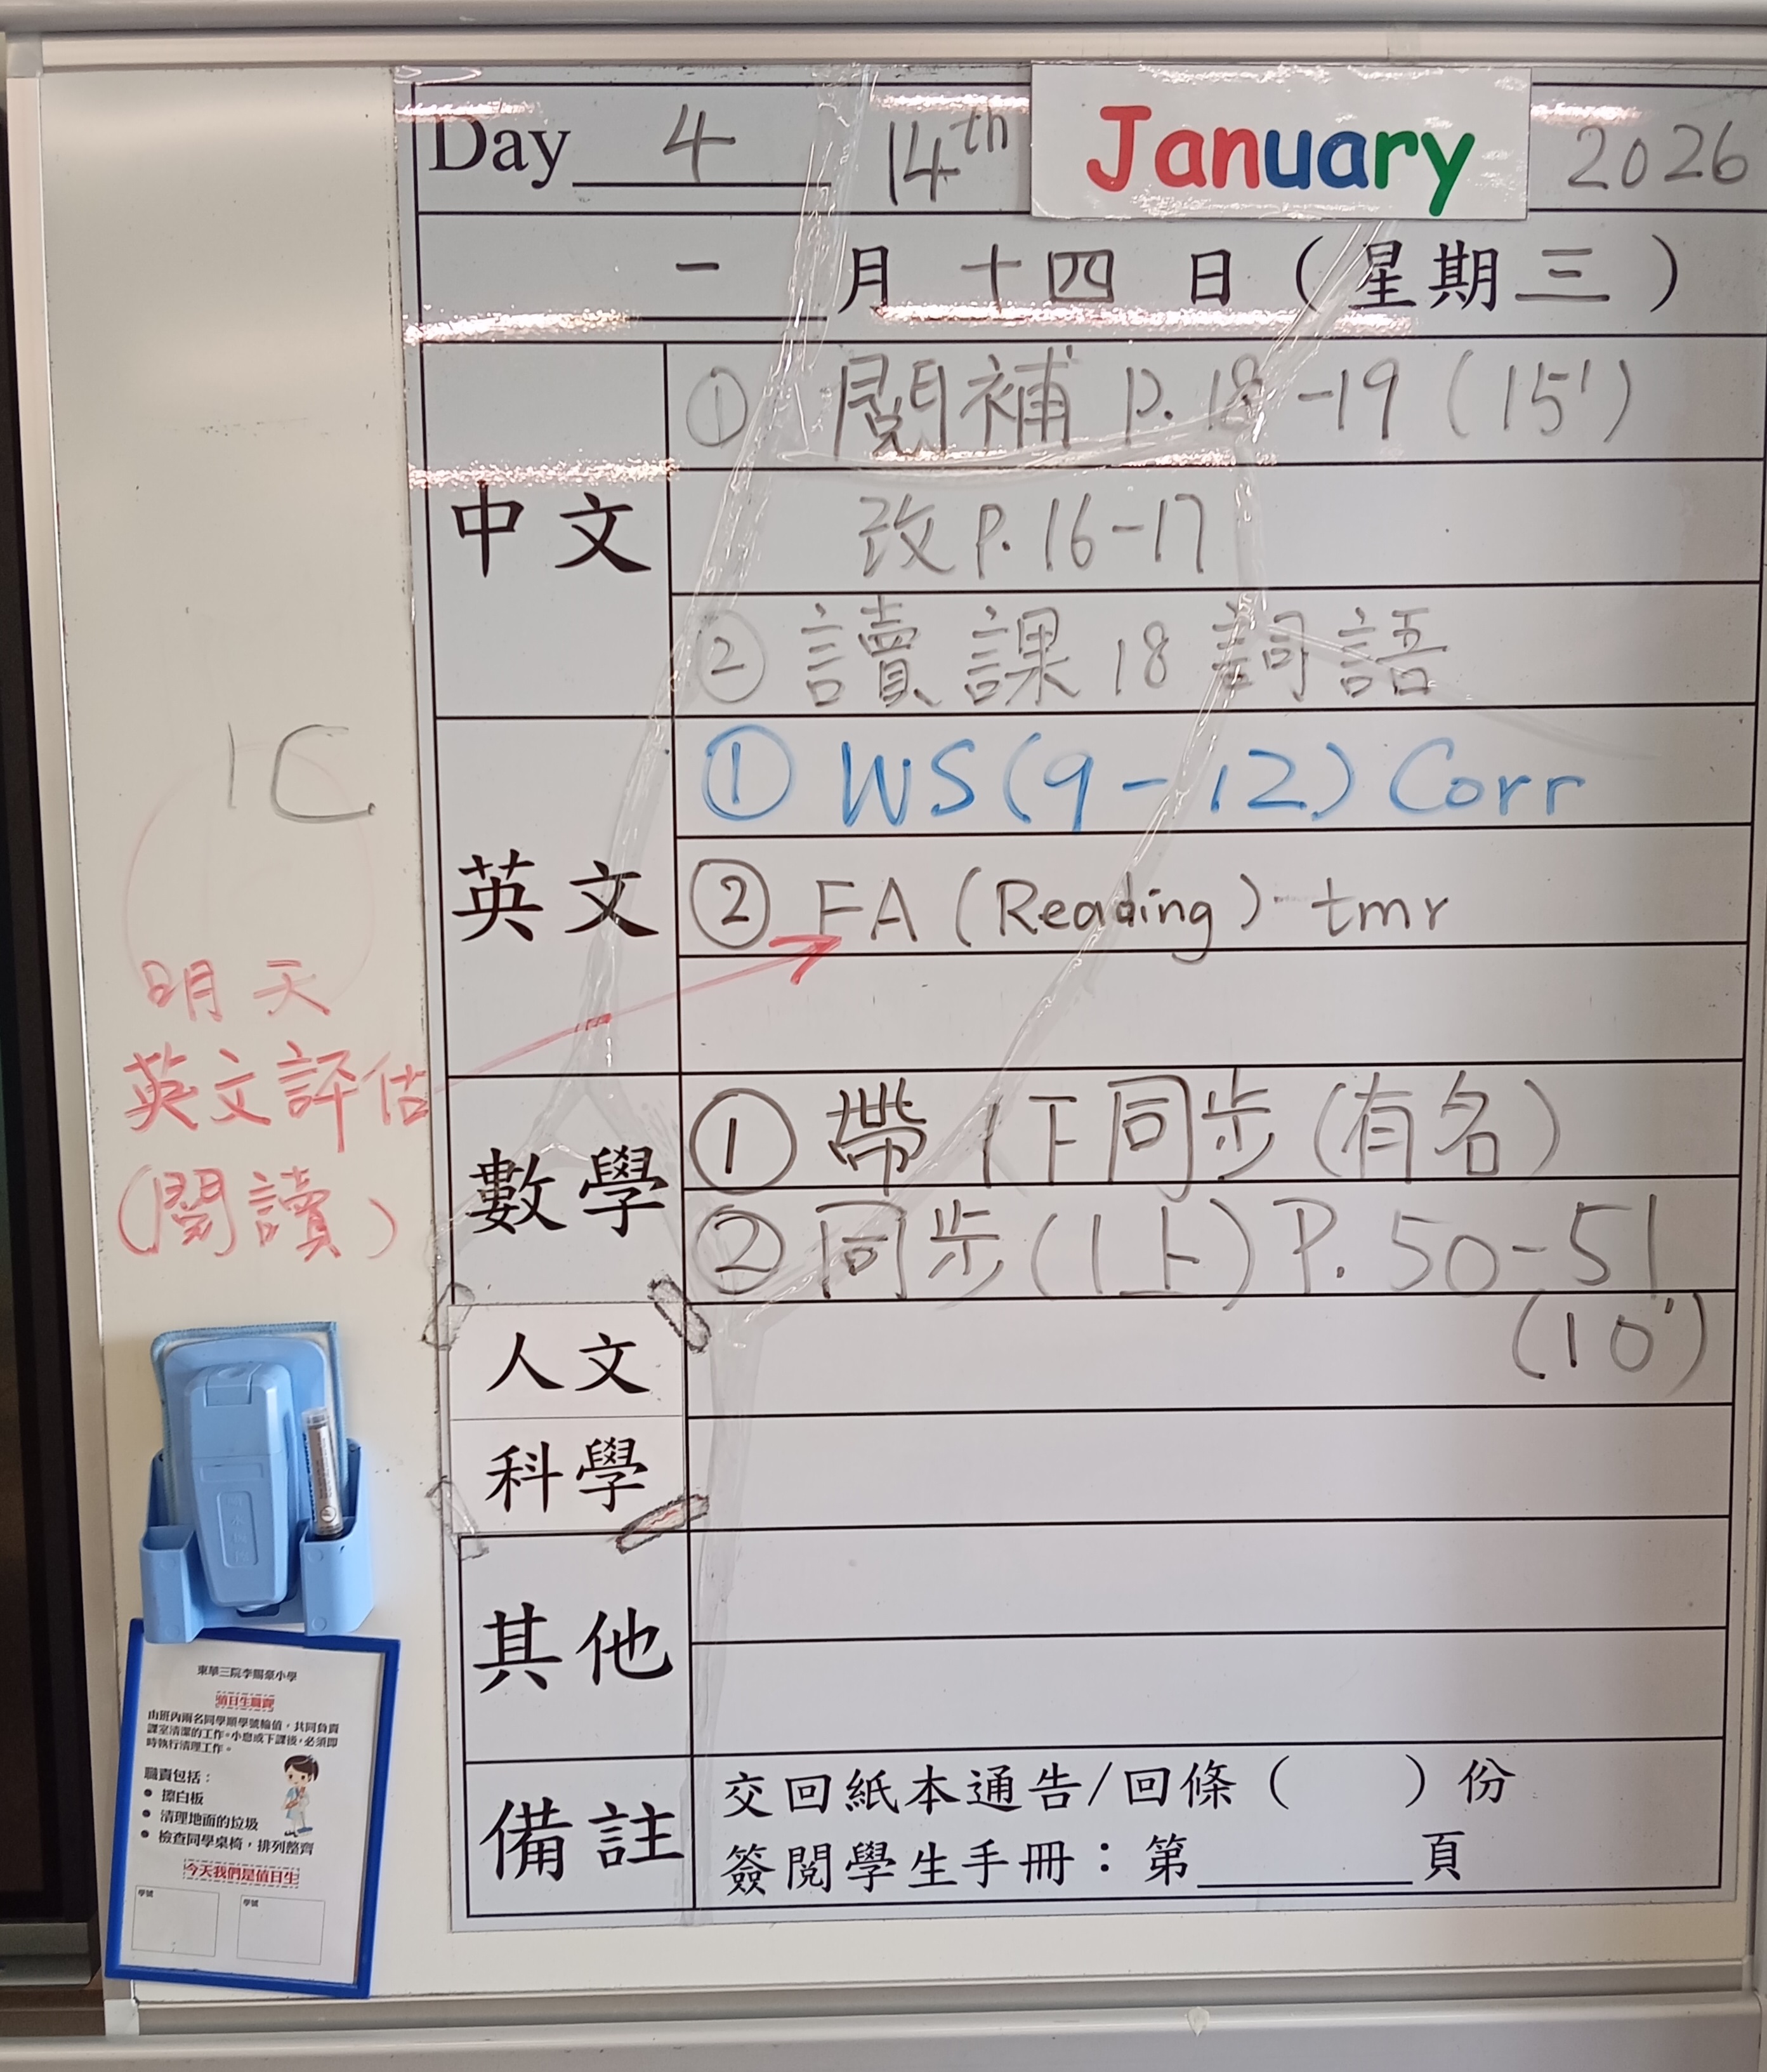 Day 4 14th January 2026
一 月 十四 日（星期三）
中文
① 閱補 P.18-19 (15')
改 P.16-17
② 讀課18詞語
英文
① WS(9-12) Corr
② FA (Reading) - tmr
數學
① 帶1下同步(有名)
② 同步(1上) P.50-51
(10')
人文
科學
其他
備註
交回紙本通告/回條（　　）份
簽閱學生手冊：第______頁
1C
明天
英文評估
(閱讀)
東華三院李賜豪小學
值日生職責
由班內兩名同學順學號輪值，共同負責
課室清潔的工作。小息或下課後，必須即
時執行清理工作。
職責包括：
• 擦白板
• 清理地面的垃圾
• 檢查同學桌椅，排列整齊
今天我們是值日生
學號
學號